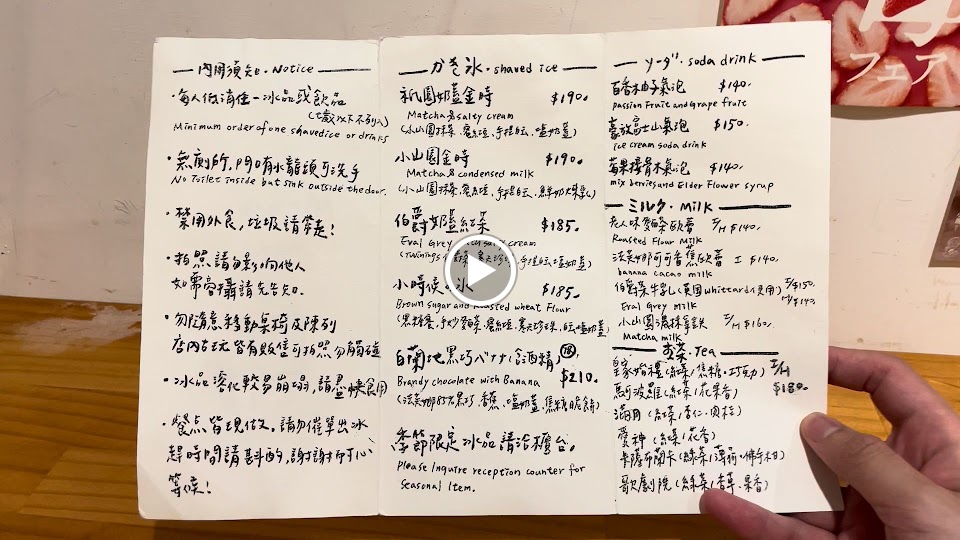 內用須知・Notice
・每人低消任一冰品或飲品
(七歲以下不列入)
Minimum order of one shavedice or drinks
・無廁所,門口有水龍頭可洗手
No Toilet inside but sink outside the door.
・禁用外食,垃圾請帶走!
・拍照請勿影響他人
如需商攝請先告知.
・勿隨意移動桌椅及陳列
店內古玩皆有販售可拍照勿觸碰
・冰品溶化較易崩塌,請盡快食用
・餐点皆現做,請勿催單出冰
趕時間請斟酌,謝謝耐心
等候!
かき氷・shaved ice
祇園奶蓋金時 $190.
Matcha & salty cream
(小山園抹茶、蜜紅豆、手搓白玉、塩奶蓋)
小山園金時 $190.
Matcha & condensed milk
(小山園抹茶、蜜紅豆、手搓白玉、鮮奶煉乳)
伯爵奶蓋紅茶 $185.
Eral Grey cream
(Twinings 手搓白玉、塩奶蓋)
小時候の氷 $185.
Brown sugar and Roasted wheat Flour
(黑糖蜜、手炒麵茶、蜜紅豆、寒天珍珠、白玉、塩奶蓋)
白蘭地黑巧バナナ(含酒精) $210.
Brandy chocolate with Banana
(法芙娜85%黑巧、香蕉、塩奶蓋、焦糖脆餅)
季節限定冰品請洽櫃台。
Please Inquire reception counter for
Seasonal Item.
ソーダ・soda drink
百香柚子氣泡 $140.
passion Fruit and Grape fruit
豪放富士山氣泡 $150.
ice cream soda drink
莓果接骨木氣泡 $140.
mix berries and Elder Flower syrup
ミルク・Milk
老人味麵茶歐蕾 I/H $140.
Roasted Flour Milk
法芙娜可可香蕉歐蕾 I $140.
banana cacao milk
伯爵茶牛乳(英國Whittard使用) I/$150. H/$140.
Eral Grey milk
小山園濃抹拿鐵 I/H $160.
Matcha milk
お茶・Tea
皇家婚禮(紅茶/焦糖・巧克力) I/H
馬可波羅(紅茶/花果香) $180.
滿月(紅茶/杏仁・肉桂)
愛神(紅茶/花香)
卡薩布蘭卡(綠茶/薄荷・佛手柑)
歌劇院(綠茶/香草・果香)
フェア